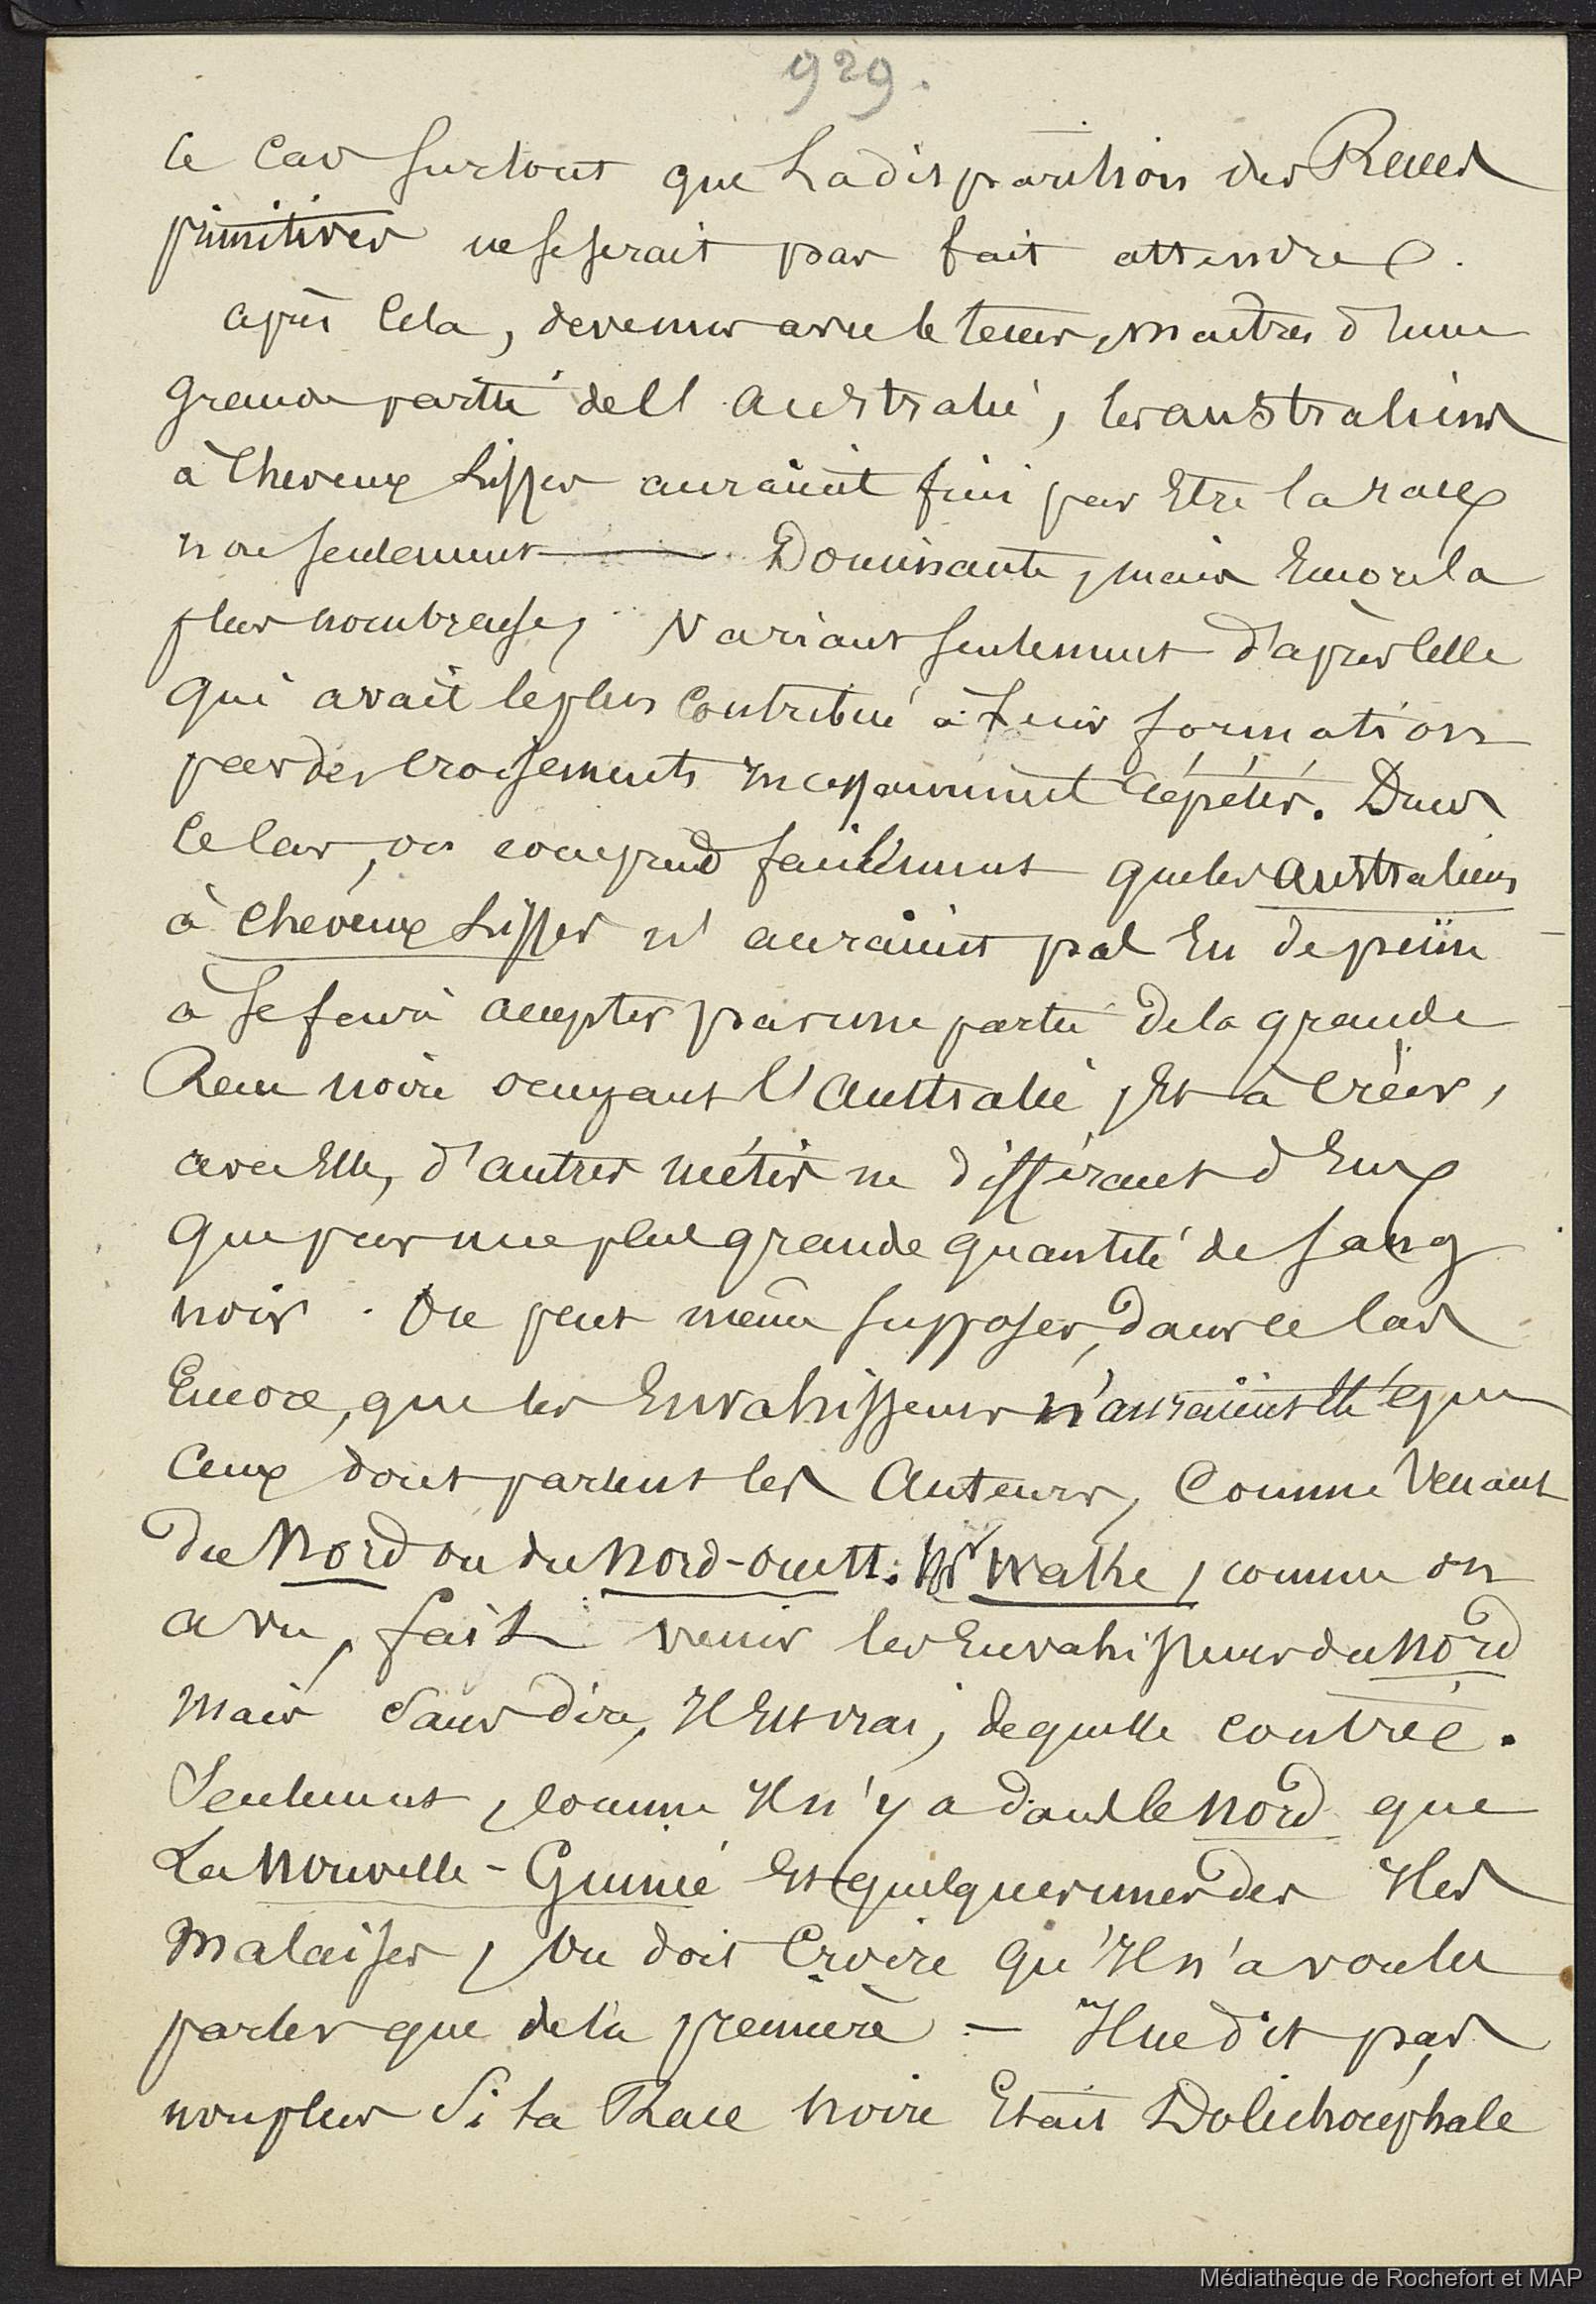 929.
le Cas surtout que La disparition des Races
primitives ne se serait pas fait attendre.
après Cela, devenus avec le temps, maitres d'une
Grande partie de l'Australie, les australiens
à Cheveux Lisses auraient fini par Etre la race
non seulement Dominante, mais Encore la
plus nombreuse, Variant seulement d'après Celle
qui avait le plus Contribué à Leur formation
par des Croisements incessamment répétés. Dans
Ce Cas, on comprend facilement que les Australiens
à Cheveux Lisses n'auraient pas Eu de peine
à se faire accepter par une partie de la grande
Race noire occupant l'Australie, Et à Créer,
avec Elle, d'autres métis ne différant d'Eux
que par une plus grande quantité de sang
noir. On peut même supposer, dans ce Cas
Encore, que les Envahisseurs n'auraient été que
Ceux dont parlent les Auteurs, Comme Venant
du Nord ou du Nord-ouest. Mr Wake, comme on
a vu, fait venir les Envahisseurs du Nord
Mais Sans dire, Il Est vrai, de quelle contrée.
Seulement, Comme Il n'y a dans le Nord que
La Nouvelle-Guinée Et quelques unes des Iles
Malaises, On doit Croire qu'Il n'a voulu
parler que de la première - Il ne dit pas
non plus Si la Race noire Etait Dolichocéphale
Médiathèque de Rochefort et MAP